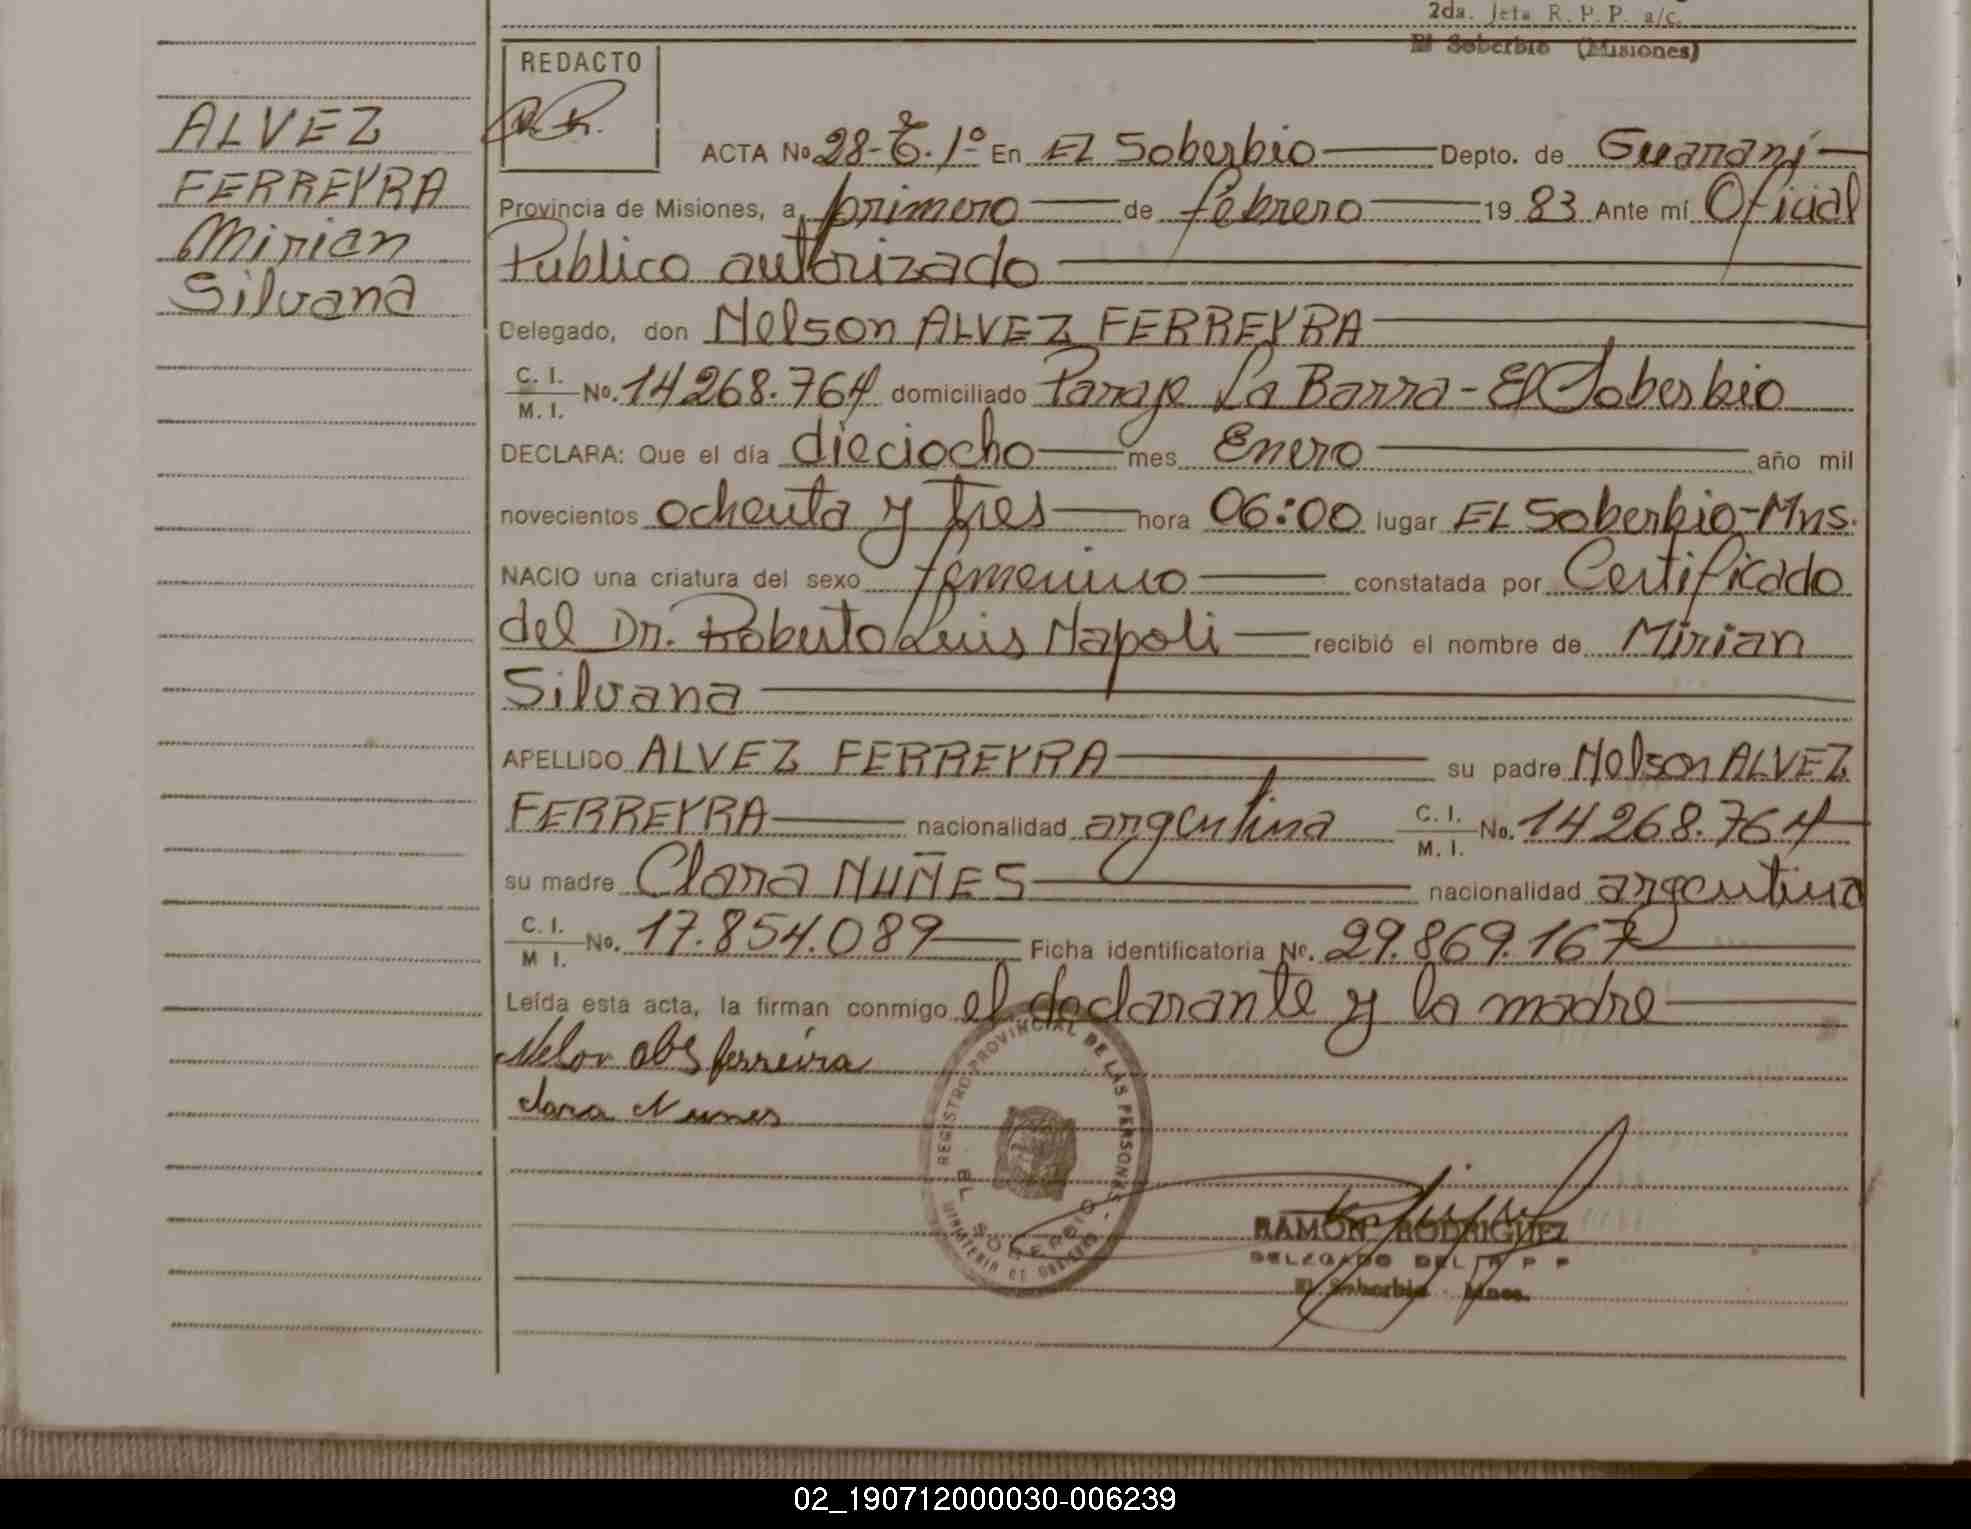 2da. Jefa R. P. P. a/c.
El Soberbio (Misiones)
REDACTO
ALVEZ
FERREYRA
Mirian
Silvana
ACTA No 28-T. 1º En EL Soberbio Depto. de Guaraní
Provincia de Misiones, a primero de febrero 19 83 Ante mí Oficial
Publico autorizado
Delegado, don Nelson ALVEZ FERREYRA
C. I. / M. I. No. 14268.764 domiciliado Paraje La Barra - El Soberbio
DECLARA: Que el día dieciocho mes Enero año mil
novecientos ochenta y tres hora 06:00 lugar EL Soberbio-Mns.
NACIO una criatura del sexo femenino constatada por Certificado
del Dr. Roberto Luis Napoli recibió el nombre de Mirian
Silvana
APELLIDO ALVEZ FERREYRA su padre Nelson ALVEZ
FERREYRA nacionalidad argentina C. I. / M. I. No. 14268.764
su madre Clara NUÑES nacionalidad argentina
C. I. / M I. No. 17.854.089 Ficha identificatoria No. 29.869.167
Leída esta acta, la firman conmigo el declarante y la madre
ferreira
Clara Nunes
REGISTRO PROVINCIAL DE LAS PERSONAS
EL SOBERBIO
RAMON RODRIGUEZ
DELEGADO DEL R P P
El Soberbio Mnes.
02_190712000030-006239